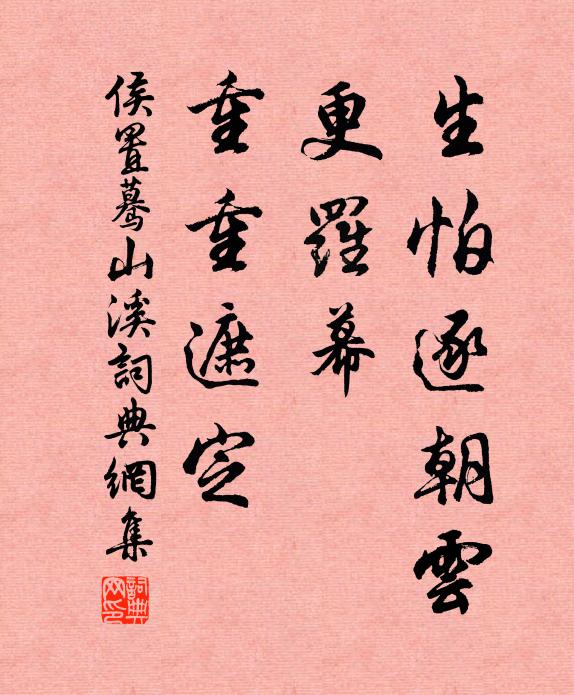 生怕逐朝雲
更羅幕
重重遮定
侯置驀山溪詞典網集
詞典網印